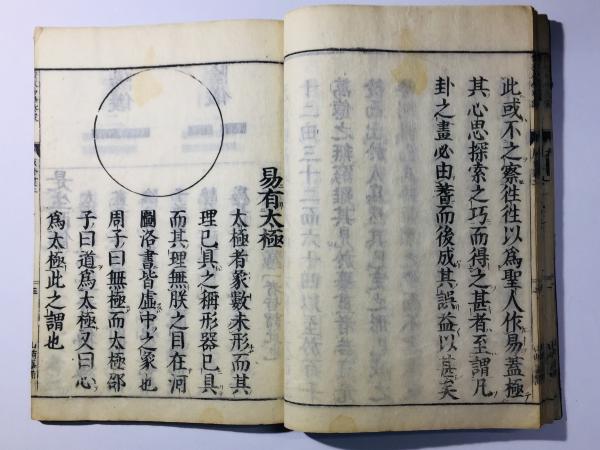 此或不之察徃徃以爲聖人作易蓋極
其心思探索之巧而得之甚者至謂凡
卦之畫必由蓍而後成其誤益以甚矣
易有太極
太極者象數未形而其
理已具之稱形器已具
而其理無朕之目在河
圖洛書皆虛中之象也
周子曰無極而太極邵
子曰道爲太極又曰心
爲太極此之謂也